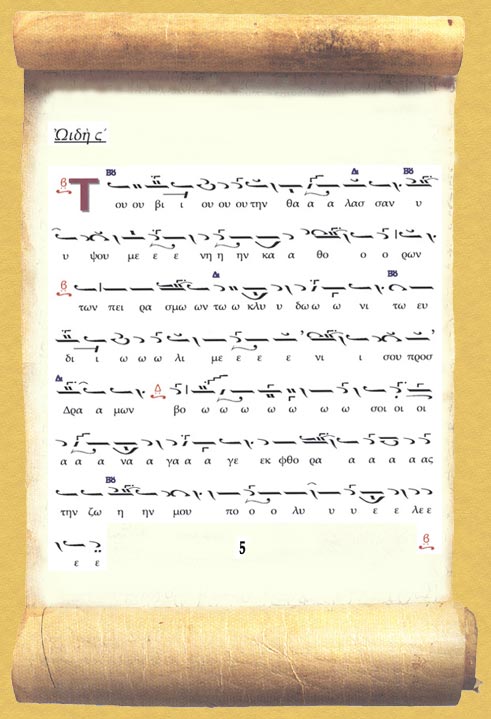 ᾨδὴ ς΄
Βδ Δι Βδ
β Τ ου ου βι ι ου ου ου την θα α α λασ σαν υ
υ ψου με ε ε νη η ην κα α θο ο ο ρων
β Βδ
των πει ρα σμω ων τω ω κλυ υ δω ω ω νι τω ευ
δι ι ω ω ω λι με ε ε ε νι ι σου προσ
Δι Δ
Δρα α μων βο ω ω ω ω ω ω ω σοι οι οι
α α α να α γα α α γε εκ φθο ρα α α α α ας
Βδ
την ζω η ην μου πο ο ο λυ υ υ ε ε λε ε
ε ε 5 β